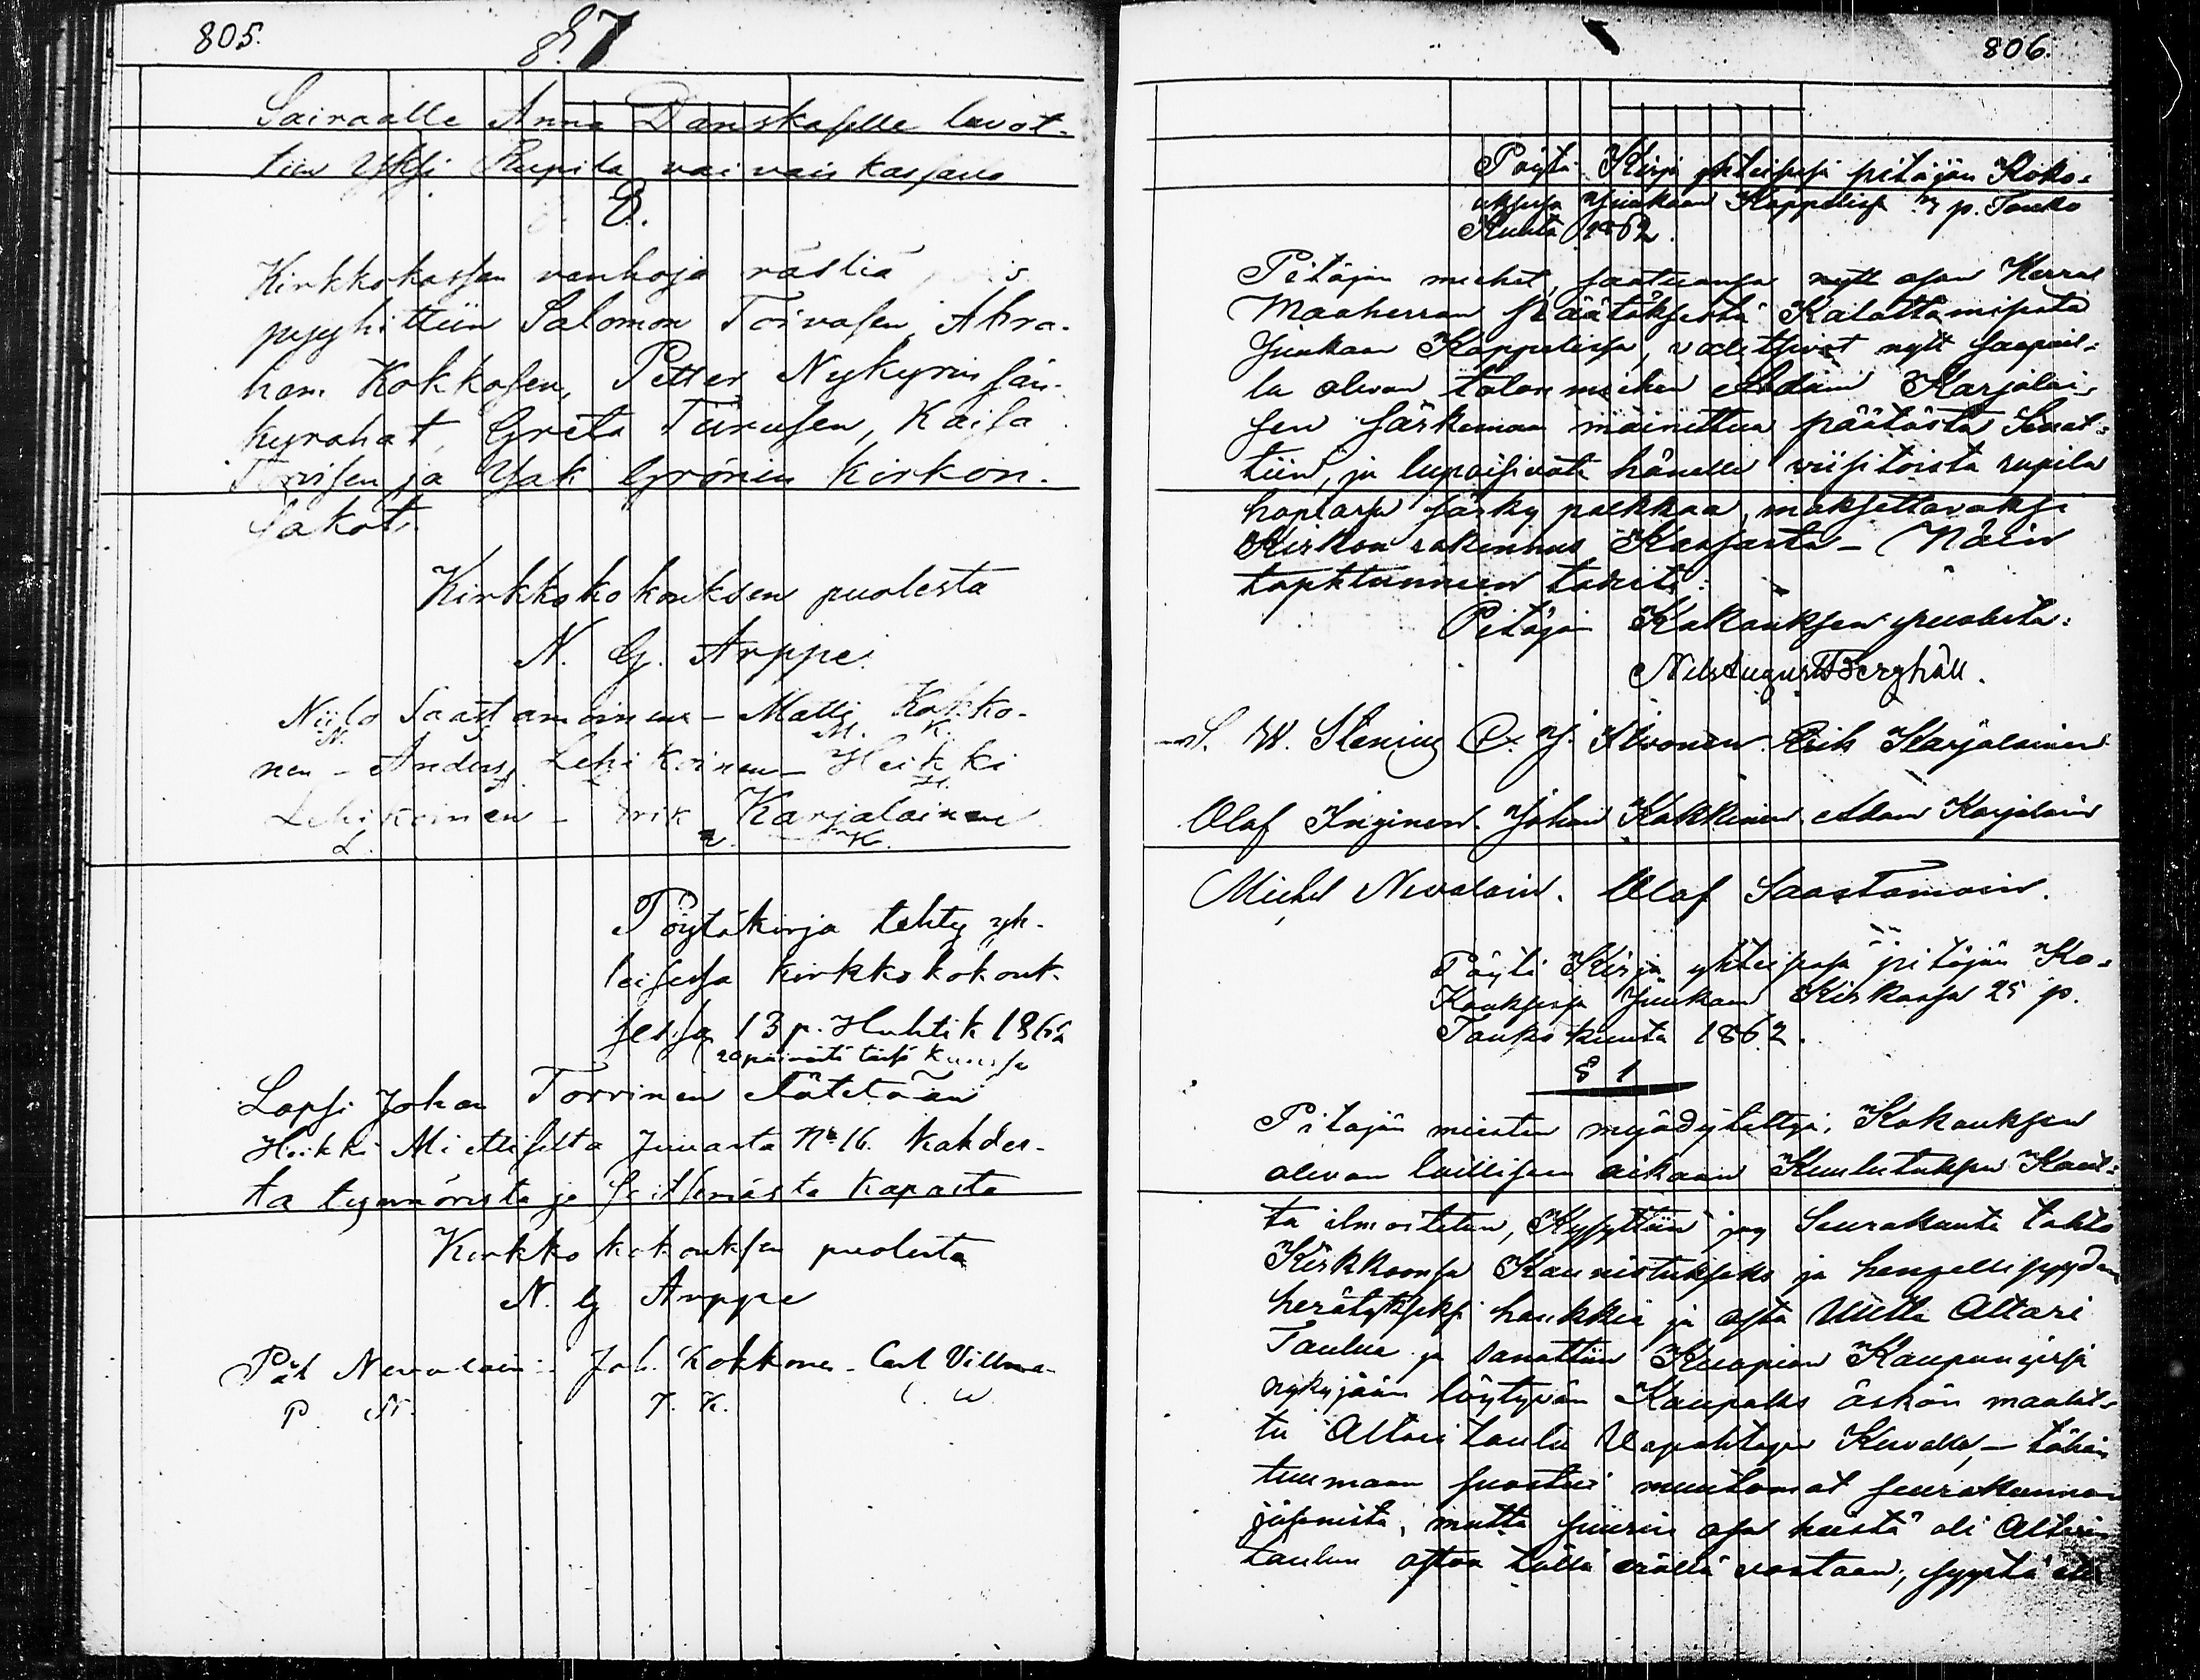 805.
§7
Sairaalle Anna Danskaselle luvot-
tiin Yksi Rupila vaivais kassasta
8.
Kirkkokassan vanhoja rästiä
pyyhittiin Salomon Toivasen, Abra-
ham Kokkosen, Petter Nykyrin sän-
kyrahat, Greta Turusen, Kaisa
Torvisen ja Isak Grönin Kirkon-
Sakot.
Kirkkokokouksen puolesta
N. G. Arppe.
Niilo Saastamoinen - Matti Kokko-
N. S. M. K.
nen - Anders Lehikoinen - Heikki
Lehikoinen - Erik Karjalainen
L. K.
Pöytäkirja tehty yh-
teisessä kirkkokokouk-
sessa 13 p. Huhtik 1862
Lapsi Johan Torvinen elätetään
Heikki Miettiselta Juuasta No 16. kahdes-
ta tynnöristä ja seitsemästä kapasta
Kirkko kokouksen puolesta
N. G Arppe
Pål Nevalain - Joh. Kokkonen - Carl Villman
P. N. J. K. C. W
806.
Pöytä Kirja yhteisessä pitäjän Koko-
uksessa Juukaan Kappelissa p. Touko
Kuuta 1862.
Pitäjän miehet, saatuansa nytt asian Herra
Maaherran päätöksestä Kalattamisesta
Juukaan Kappelissa, valitsivat nytt saapuil-
la olevan talon miehen Adam Karjalai-
sen särkemään mainittua päätöstä Senat-
tiin, ja lupaisivat hänelle viisitoista rupila
hopiassa särky palkkaa, maksettavaksi
Kirkon rakennus Kassasta - Näin
tapahtunneen todisti:
Pitäjän Kokouksen puolesta:
Nils August Berghäll.
W. Stenius J. Ikonen. Erik Karjalainen
Olaf Inginen. Johan Kokkonen. Adam Karjalain
Michel Nevalain. Olaf Saastamoin.
Pöytä Kirja yhteisessä pitäjän Ko-
kouksessa Juukaan Kirkossa 25 p.
Touko kuuta 1862.
§ 1
Pitäjän miesten myödytettyä, Kokouksen
olevan laillisen aikaan Kuulutuksen Kaut-
ta ilmoitetun, Kysyttiin jos Seurakunta tahto
Kirkkoonsa Kaunistukseks ja hengellisyyden
herätykseksi hankkia ja osta Uutta Altari
Taulua ja sanottiin Kuopion Kaupungissa
nykyjään löytyvän Kaupaks äskön maalat-
tu Altari taulu Vapahtajan Kuvalla, - tähän
tuumaan suostui muutamat seurakunnan
jäsenistä, mutta suurin osa heistä oli Altari
taulun ostoa tällä erällä vastaan, syystä että